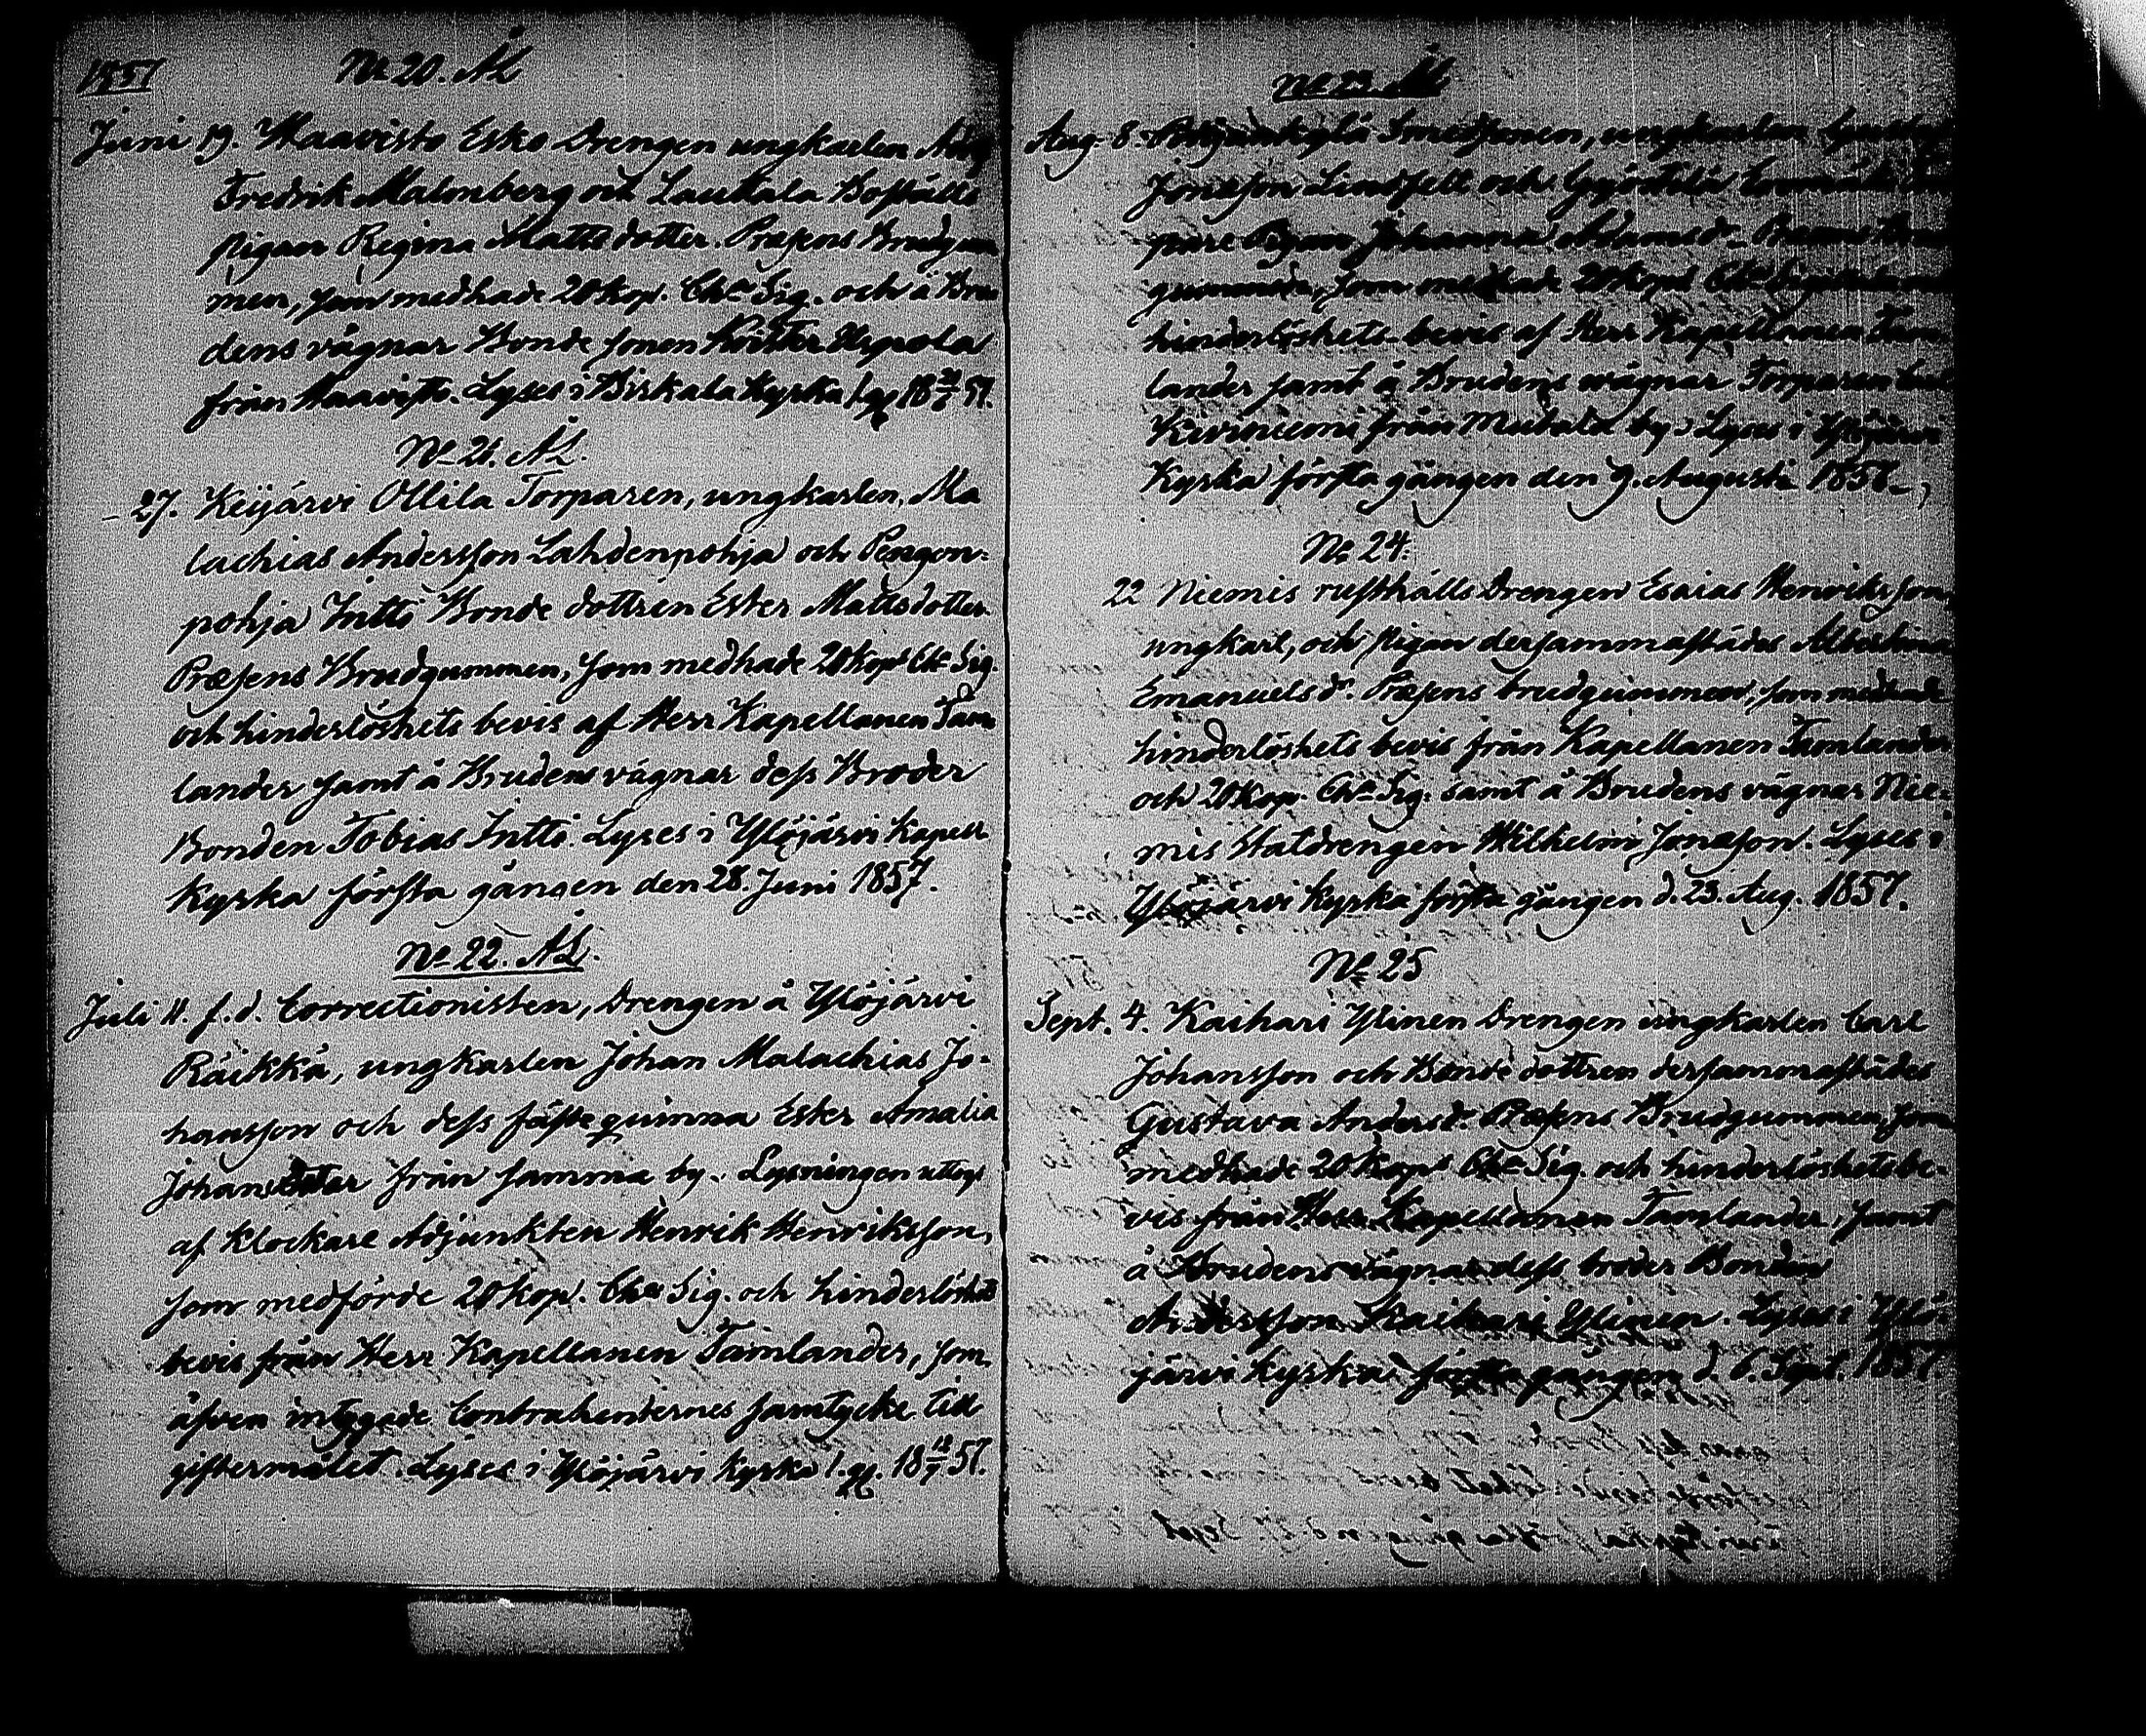 1857
No 20. AL
Juni 19. Haavisto Esko Drengen ungkarlen
Fredrik Malmberg och Laukala Boställs
pigan Regina Mattsdotter. Præsens Brudgum
men, som medhade 20 kop. Cha Sig. och å Bru
dens vägnar Bonde sonen Heppola
från Haavisto. Lyses i Birkala Kyrka 1 gg 18 21/6 57.
No 21. AL.
- 27. Keijärvi Ollila Torparen, ungkarlen, Ma
lachias Andersson Lahdenpohja och Pengon-
pohja Intti Bonde dottren Ester Mattsdotter.
Præsens Brudgummen, som medhade 20 kop. Cha Sig.
och hinderlöshets bevis af Herr Kapellanen Tam
lander samt å Brudens vägnar dess Broder
Bonden Tobias Intti. Lyses i Ylöjärvi Kapell
kyrka första gången den 28. Juni 1857.
No 22. AL.
Juli 11. f.d. Correctionisten, Drengen å Ylöjärvi
Räikkä, ungkarlen Johan Malachias Jo-
hansson och dess fästeqvinna Ester Amalia
Johansdotter från samma by. Lysningen uttogs
af Klockare Adjunkten Henrik Henriksson,
som medförde 20 kop. Cha Sig. och hinderlöshets
bevis från Herr Kapellanen Tamlander, som
äfven intygade Contrahendernes samtycke till
giftermålet. Lyses i Ylöjärvi Kyrka 1. gg. 18 12/7 57.
No 23. AL
Aug. 8. Smedsonen, ungkarlen
Jonasson Lindfell och
pare Pigan Johanna Adamsd.
gummen, som medhade 20 kops Cha
hinderlöshets-bevis af Herr Kapellanen Tam
lander samt å Brudens vägnar Torparen
Kiviniemi från by. Lyses i Ylöjärvi
Kyrka första gången den 9. Augusti 1857.
No 24.
22 Niemis rusthålls Drengen Esaias Henriksson,
ungkarl, och pigan dersammastädes Albertina
Emanuelsdr. Præsens brudgummen, som medhade
hinderlöshets bevis från Kapellanen Tamlander
och 20 kop. Cha Sig. samt å Brudens vägnar Nie-
mis Statdrengen Wilhelm Jonasson. Lyses i
Ylöjärvi Kyrka första gången d. 23. Aug. 1857.
No 25
Sept. 4. Kaihari Ylinen Drengen ungkarlen Carl
Johansson och Bonde dottren dersammastädes
Gustava Andersd. Præsens Brudgummen, som
medhade 20 kops Cha Sig. och hinderlöshetsbe-
vis från Herr Kapellanen Tamlander, samt
å Brudens vägnar dess broder Bonden
Andersson Kaihari Ylinen. Lyses i Ylö-
järvi Kyrka första gången d. 6. Sept. 1857.